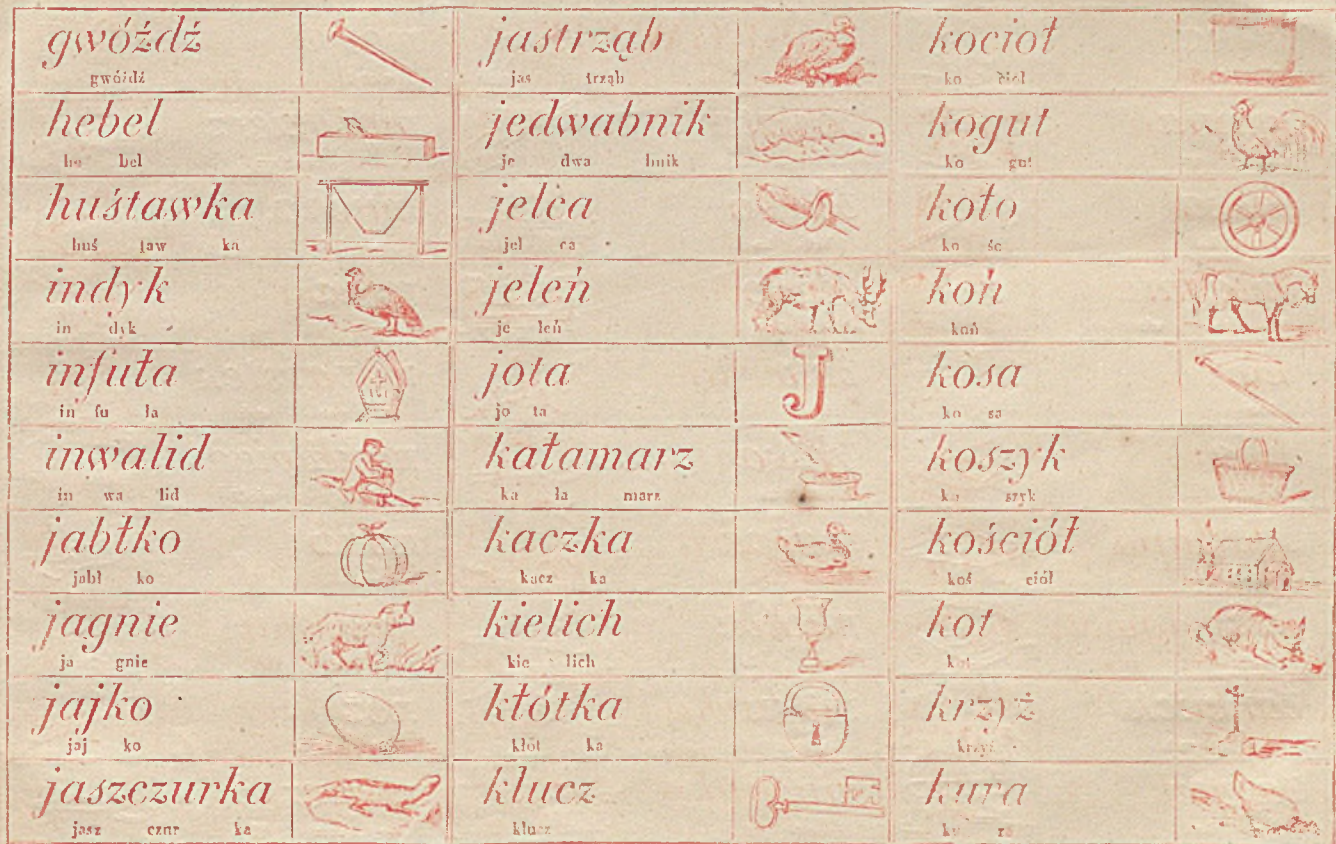 gwóźdź
gwóźdź
hebel
he bel
huśtawka
huś taw ka
indyk
in dyk
infuła
in fu ła
inwalid
in wa lid
jabłko
jabł ko
jagnie
ja gnie
jajko
jaj ko
jaszczurka
jasz czur ka
jastrząb
jas trząb
jedwabnik
je dwa bnik
jelca
jel ca
jeleń
je leń
jota
jo ta
J
kałamarz
ka ła marz
kaczka
kacz ka
kielich
kie lich
kłótka
kłót ka
klucz
klucz
kocioł
ko cioł
kogut
ko gut
koło
ko
koń
koń
kosa
ko sa
koszyk
ko szyk
kościół
koś ciół
kot
kot
krzyż
krzyż
kura
ku ra